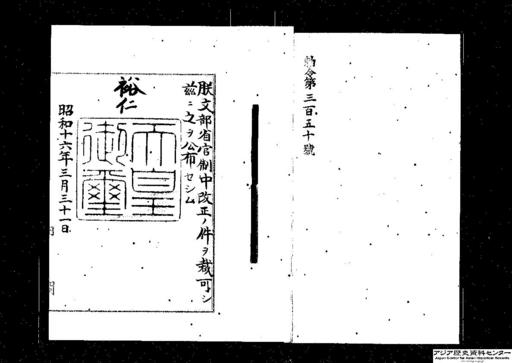 勅令第三百五十號
朕文部省官制中改正ノ件ヲ裁可シ
茲ニ之ヲ公布セシム
裕仁
天皇
御璽
昭和十六年三月三十一日
アジア歴史資料センター
Japan Center for Asian Historical Records